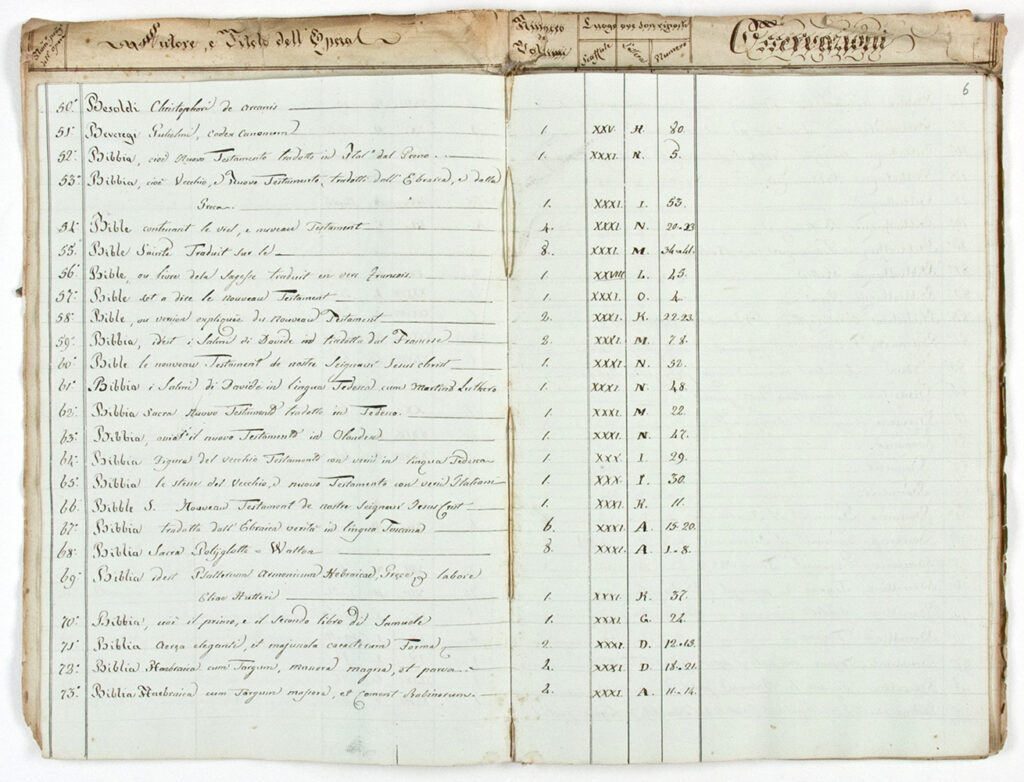 Autore, e Titolo dell'Opera
Numero
Luogo ove son riposte
Scaffale Lettera Numero
Osservazioni
6
50. Besoldi Christophori de arcanis
51. Beveregi Gulielmi, codex canonum 1. XXV. H. 80.
52. Bibbia, cioè Nuovo Testamento tradotto in Ital.º dal 1. XXXI. N. 5.
53. Bibbia, cioè Vecchio, e Nuovo Testamento, tradotta dall' Ebraica, e dalla
Greca. 1. XXXI. I. 53.
54. Bible contenant le viel, e nouveau Testament 4. XXXI. N. 20-23
55. Bible Sainte Traduit sur le 8. XXXI. M. 34-41.
56. Bible, ou livre dela Sagesse traduit en ver francois. 1. XXVIII. L. 45.
57. Bible set a dire le nouveau Testament 1. XXXI. O. 4.
58. Bible, ou version expliquée du nouveau Testament 2. XXXI. K. 22-23.
59. Bibbia, idest i Salmi di Davide in tradotta dal Francese 2. XXXI. M. 7.8.
60. Bible le nouveau Testament de nostre Seigneur Jesus christ 1. XXXI. N. 52.
61. Bibbia i Salmi di Davide in lingua Tedesca cum Martino Luthero 1. XXXI. N. 48.
62. Bibbia Sacra Nuovo Testamento tradotto in Tedesco. 1. XXXI. M. 22.
63. Bibbia, il nuovo Testamento in Olandese 1. XXXI. N. 47.
64. Bibbia Figura del vecchio Testamento con versi in lingua Tedesca 1. XXX. I. 29.
65. Bibbia le stesse del Vecchio, e nuovo Testamento con versi Italiani 1. XXX. I. 30.
66. Bibble S. Nouveau Testament de nostre seigneur Jesus Crist 1. XXXI. K. 11.
67. Bibbia tradotta dall' Ebraica verità in lingua Toscana 6. XXXI. A. 15-20.
68. Biblia Sacra Polyglotta - Walton 8. XXXI. A. 1-8.
69. Biblia idest Psalterium Armonicum Hebraicae, Grece, labore
Elia Hutteri 1. XXXI. K. 37.
70. Bibbia, cioè il primo, e il secondo libro di Samuele 1. XXXI. G. 22.
71. Biblia elegante, et majuscula caracterum Forma 2. XXXI. D. 12-13.
72. Biblia Haebraica cum Targum, masora magna, et parva. 2. XXXI. D. 18-21.
73. Biblia Haebraica cum Targum masora, et coment. Rabinorum. 2. XXXI. A. 11-14.